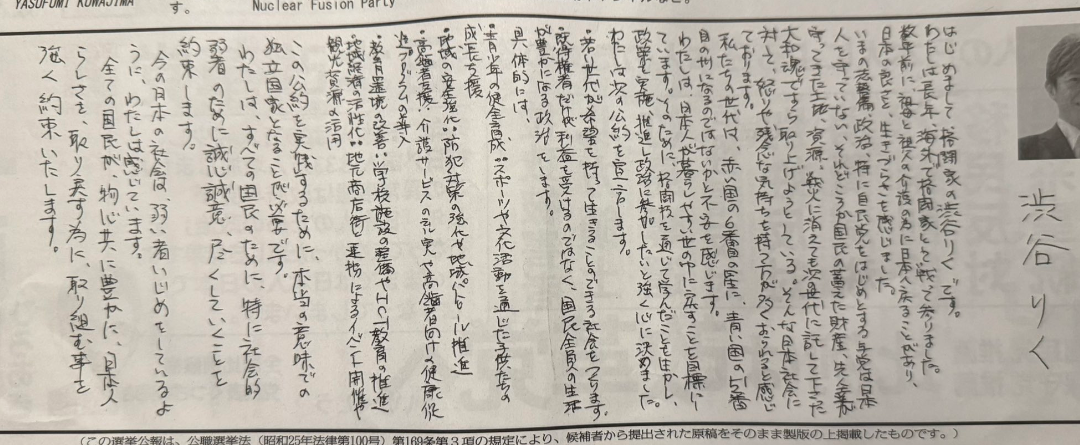 YASUFUMI KUWAJIMA
す。
Nuclear Fusion Party
渋谷りく
はじめまして格闘家の渋谷りくです。
わたしは長年、海外で格闘家として戦って参りました。
数年前に、祖母と祖父の介護の為に日本へ戻ることがあり、
日本の良さを、生きづらさを感じました。
いまの法整備、政治、特に自民党をはじめとする与党は日本
人を守っていない、それどころか国民の蓄えた財産、先人達が
守ってきた土地、資源、戦火に消えても次の世代に託して下さった
大和魂ですら取り上げようとしている。そんな日本社会に
対して、怒りや残念な気持ちを持つ方が多くおられると感じ
ております。
私たちの世代は、赤い国の6番目の星に、青い国の51番
目の州になるのではないかと不安を感じます。
わたしは、日本人が暮らしやすい世の中に戻すことを目標にし
ています。そのために、格闘技を通じて学んだことを生かし、
政策を実施、推進し政治に参加したいと強く心に決めました。
わたしは次の公約を宣言します。
・若い世代が希望を持って生きることのできる社会をつくります。
・既得権者だけが利益を受けるのではなく、国民全員の生活
が豊かになる政治をします。
具体的には、
・青少年の健全育成：スポーツや文化活動を通じた子供たちの
成長を支援
・地域の安全強化：防犯対策の強化や地域パトロール推進
・高齢者支援：介護サービスの充実や高齢者向けの健康促
進プログラムの導入
・教育環境の改善：学校施設の整備やICT教育の推進
・地域経済の活性化：地元商店街と連携によるイベント開催や
観光資源の活用
この公約を実践するために、本当の意味での
独立国家となることが必要です。
わたしは、すべての国民のために、特に社会的
弱者のために誠心誠意、尽くしていくことを
約束します。
今の日本の社会は、弱い者いじめをしているよ
うに、わたしは感じています。
全ての国民が、物心共に豊かに、日本人
らしさを、取り戻す為に、取り組む事を
強く約束いたします。
(この選挙公報は、公職選挙法（昭和25年法律第100号）第169条第3項の規定により、候補者から提出された原稿をそのまま製版の上掲載したものです。)